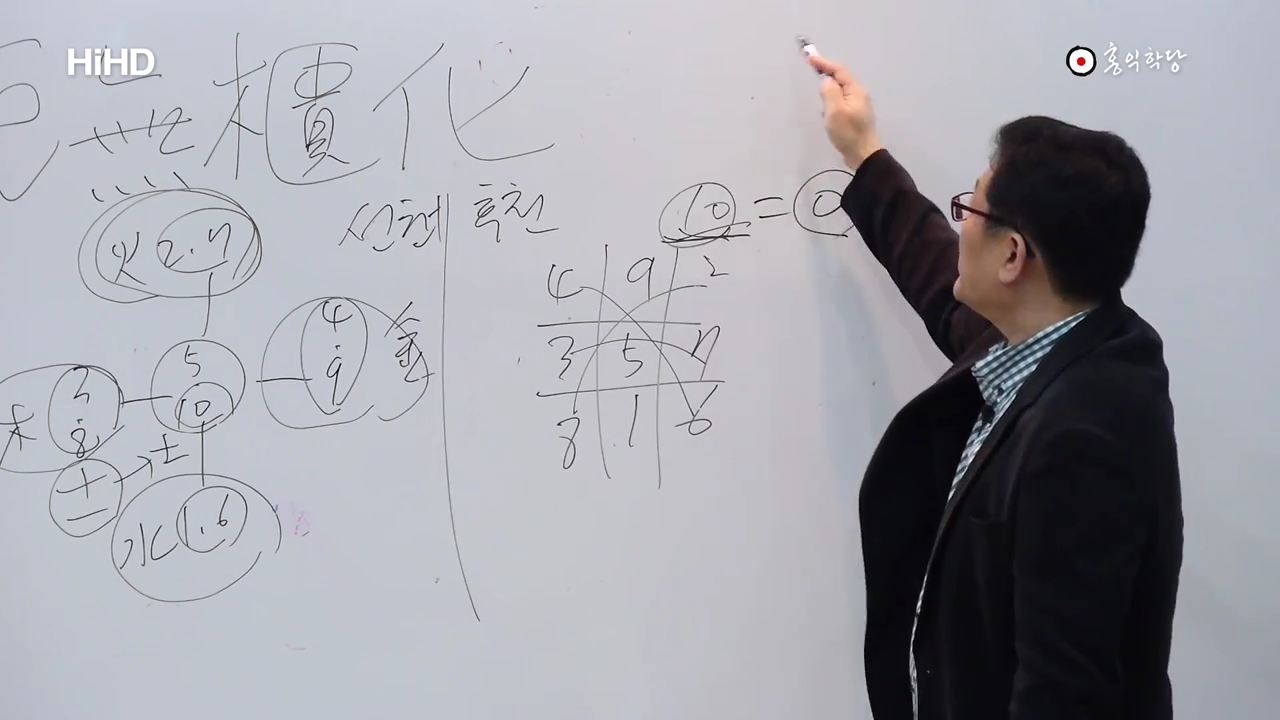 HiHD
홍익학당
匱化
선천 후천
火 2.7
10 = 0
4 9 2
3 5 7
8 1 6
4.9 金
5
10
木 3.8
十 → 土
一
水 1.6